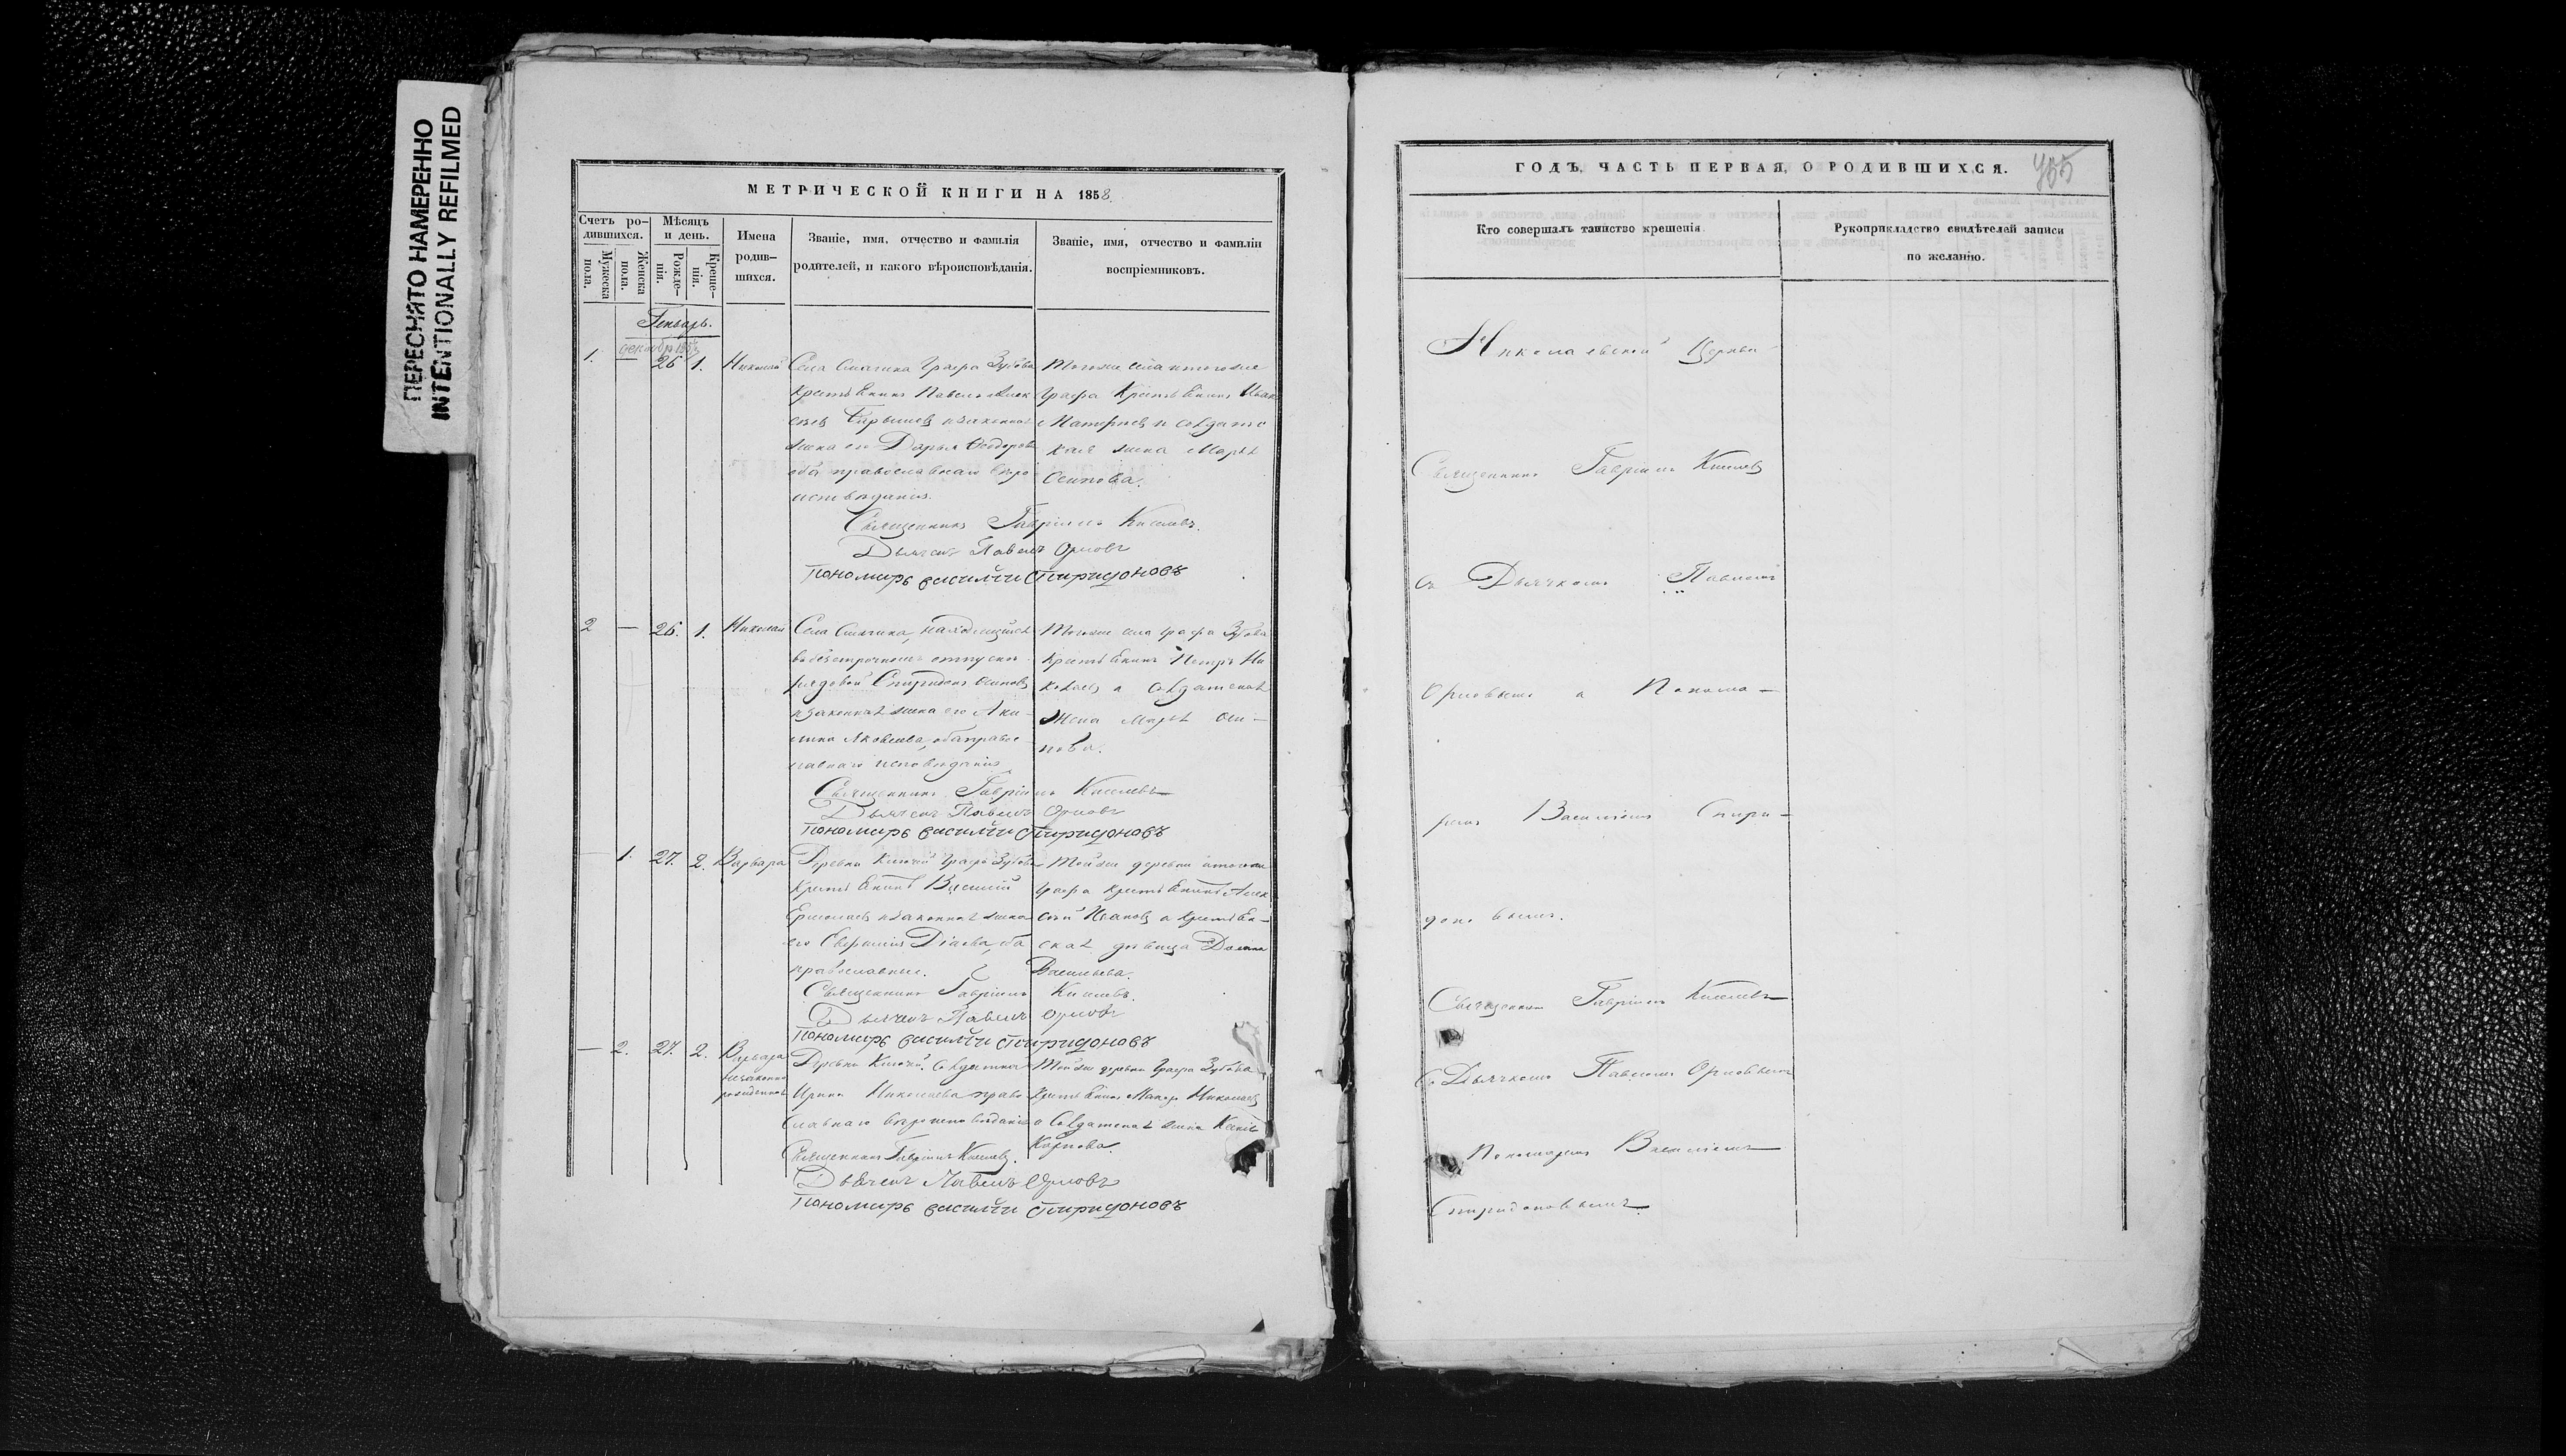 ПЕРЕСНЯТО НАМЕРЕННО
INTENTIONALLY REFILMED
МЕТРИЧЕСКОЙ КНИГИ НА 1858
Счетъ ро-
дившихся.
Мужеска
пола.
Женска
пола.
Мѣсяцъ
и день.
Рожде-
нія.
Креще-
нія.
Имена
родив-
шихся.
Званіе, имя, отчество и фамилія
родителей, и какого вѣроисповѣданія.
Званіе, имя, отчество и фамиліи
воспріемниковъ.
Генварь.
1. — 26 1. Николай
Села Графа Зубова
Крестьянинъ Павелъ Алек
и законная
жена его Дарья Ѳеодорова
оба православнаго вѣро
исповѣданія.
Тогоже села и тогоже
Графа Крестьянинъ Иванъ
и солдатс
кая жена Марья
Осипова.
Священникъ Гавріилъ Киселевъ.
Дьячекъ Павелъ Орловъ
Пономарь Василій Спиридоновъ
2 — 26. 1. Николай
Села находящійся
въ безсрочномъ отпуску
рядовой Спиридонъ Осиповъ
и законная жена его Аки-
лина Яковлева, оба правос
лавнаго исповѣданія
Тогоже села Графа Зубова
Крестьянинъ Петръ Ни
и солдатская
жена Марья Оси-
пова.
Священникъ Гавріилъ Киселевъ
Дьячекъ Павелъ Орловъ
Пономарь Василій Спиридоновъ
— 1. 27. 2. Варвара
Деревни Ключей Графа Зубова
Крестьянинъ Василій
Ермолаевъ и законная жена
его оба
православные.
Тойже деревни и тогоже
Графа Крестьянинъ Алек
сѣй Ивановъ и крестьян-
ская дѣвица
Васильева.
Священникъ Гавріилъ Киселевъ.
Дьячекъ Павелъ Орловъ
Пономарь Василій Спиридоновъ
— 2. 27. 2. Варвара
незаконно
рожденная
Деревни Ключей. Солдатка
Ирина Николаева право
славнаго вѣроисповѣданія
Тойже деревни Графа Зубова
Крестьянинъ Николаевъ
и Солдатская жена
Карпова.
Священникъ Гавріилъ Киселевъ.
Дьячекъ Павелъ Орловъ
Пономарь Василій Спиридоновъ
ГОДЪ, ЧАСТЬ ПЕРВАЯ, О РОДИВШИХСЯ.
Кто совершалъ таинство крещенія.
Рукоприкладство свидѣтелей записи
по желанію.
Николаевской Церкви
Священникъ Гавріилъ Киселевъ
съ Дьячкомъ Павломъ
Орловымъ и Понома-
ремъ Василіемъ Спири-
доновымъ.
Священникъ Гавріилъ Киселевъ
Съ Дьячкомъ Павломъ Орловымъ
и Пономаремъ Василіемъ
Спиридоновымъ.